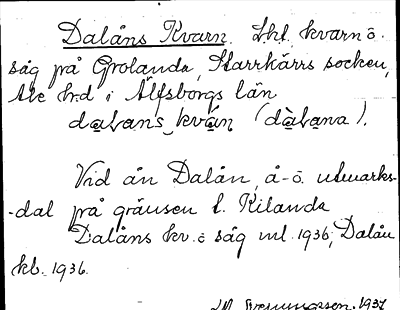 Dalåns Kvarn. Lhl. kvarn ö.
såg på Grolanda, Starrkärrs socken,
Ale hrd i Älfsborgs län
dalans kván (dàlana).
Vid ån Dalån, å- ö. utmarks-
-dal på gränsen t. Kilanda
Dalåns kv. ö såg ml. 1936, Dalån
kb. 1936.
1937